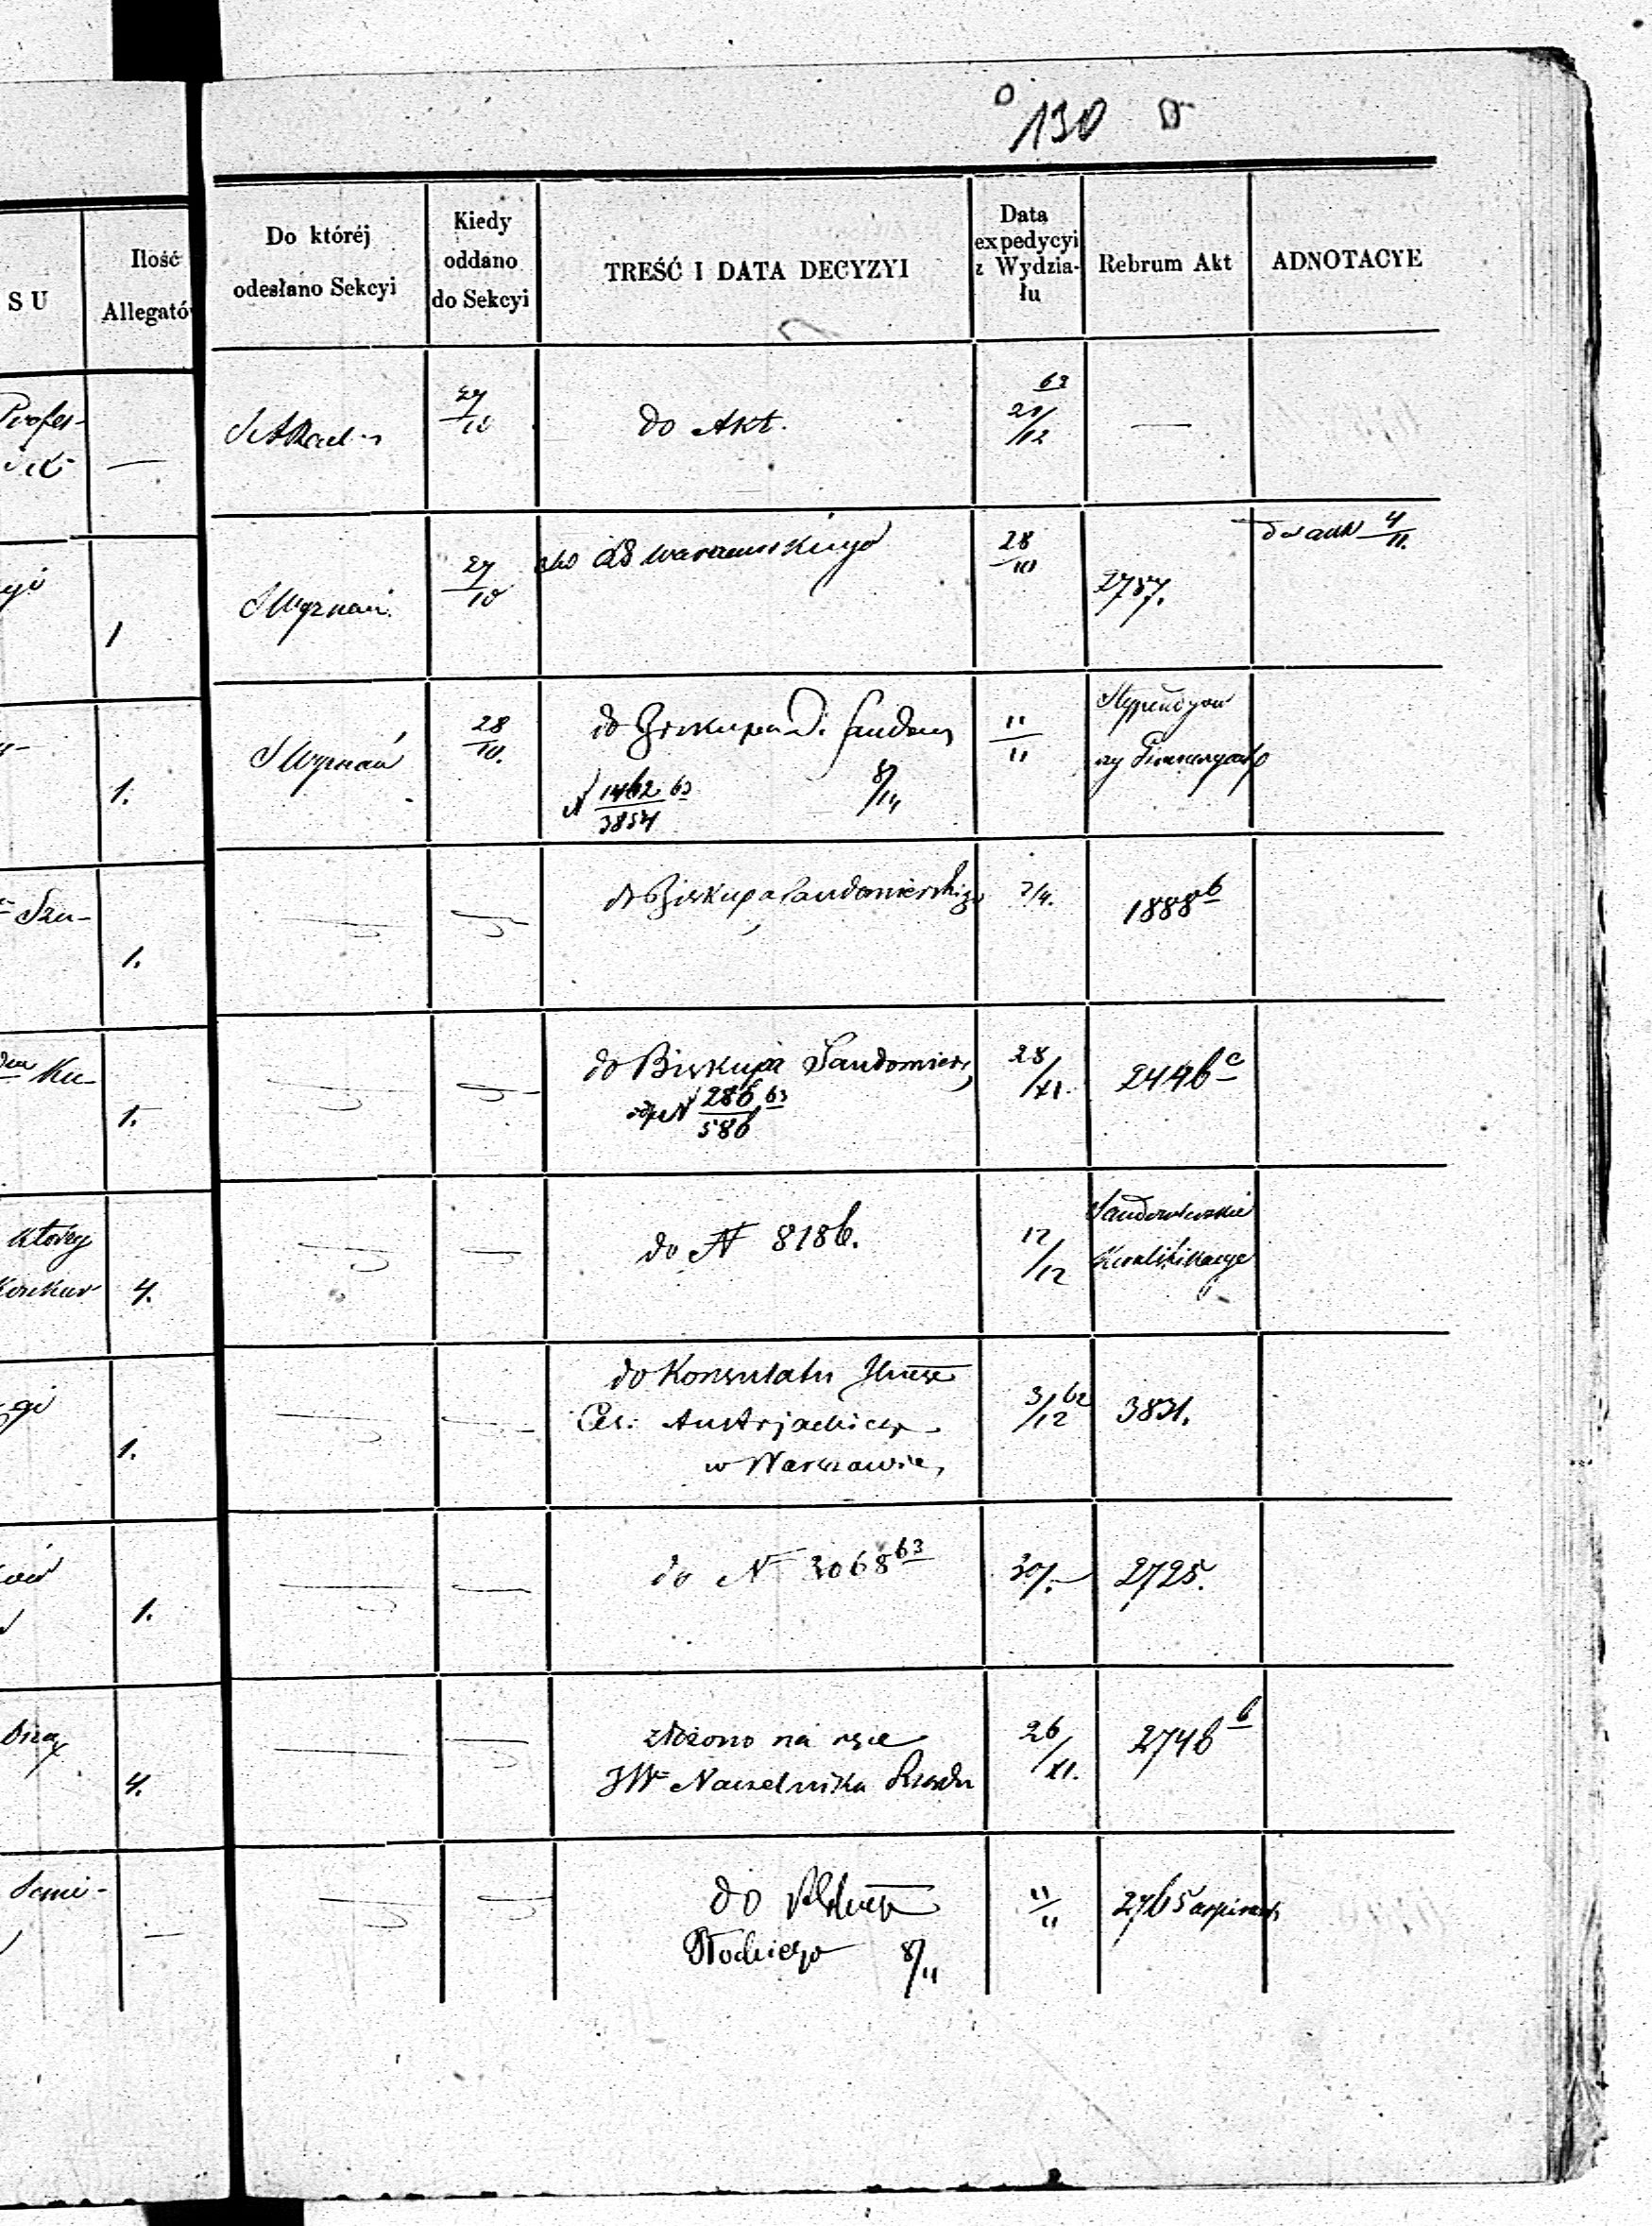 130
S U
Ilość
Allegató
Do któréj
odesłano Sekcyi
Kiedy
oddano
do Sekcyi
TREŚĆ I DATA DECYZYI
Data
expedycyi
z Wydzia-
łu
Rebrum Akt
ADNOTACYE
Profes-
—
27/10
do Akt.
63
21/12
—
1
SWyznań
27/10
do warszawskiego
28/10
2757.
4/11.
1.
SWyznań
28/10.
do Biskupa D. Sandom
8/11
N 1462/3854 63
11/11
Stypendyów
Szu-
1.
do Biskupa Sandomierskiego
7/4.
1888 b
Ku-
1.
do Biskupa Sandomiers
N 286/586 63
28/XI.
2446 c
który
Konkur
4.
do N 8186.
12/12
Kwalifikacye
gi
1.
do Konsulatu
Ces. Austrjackiego
w Warszawie,
3/12 62
3831.
1.
do N 3068 63
30/-
2725.
4.
złożono na ręce
JW Naczelnika Rządu
26/XI.
2746 b
Semi-
—
do
Płockiego 8/11
11/11
2765 aspirant